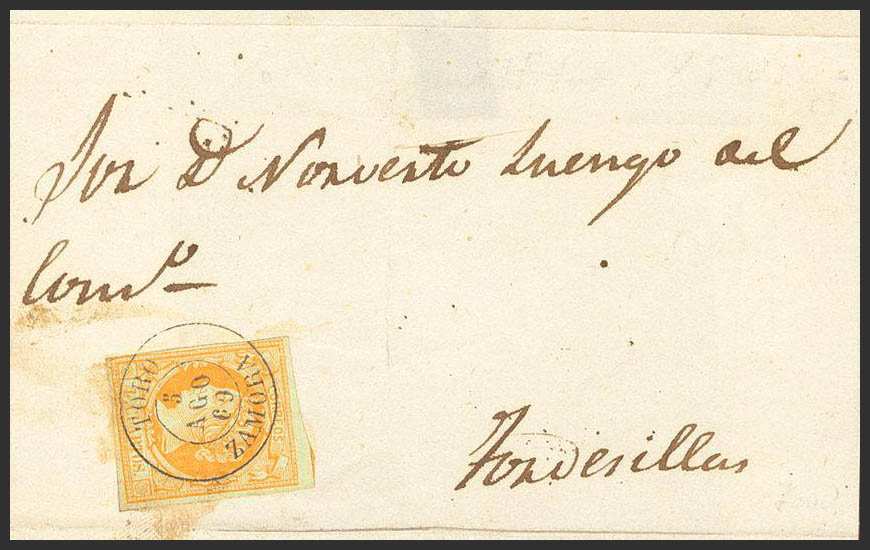 Sor D Norverto Luengo del
Comº
TORO
5
AGO
69
ZAMORA
Tordesillas